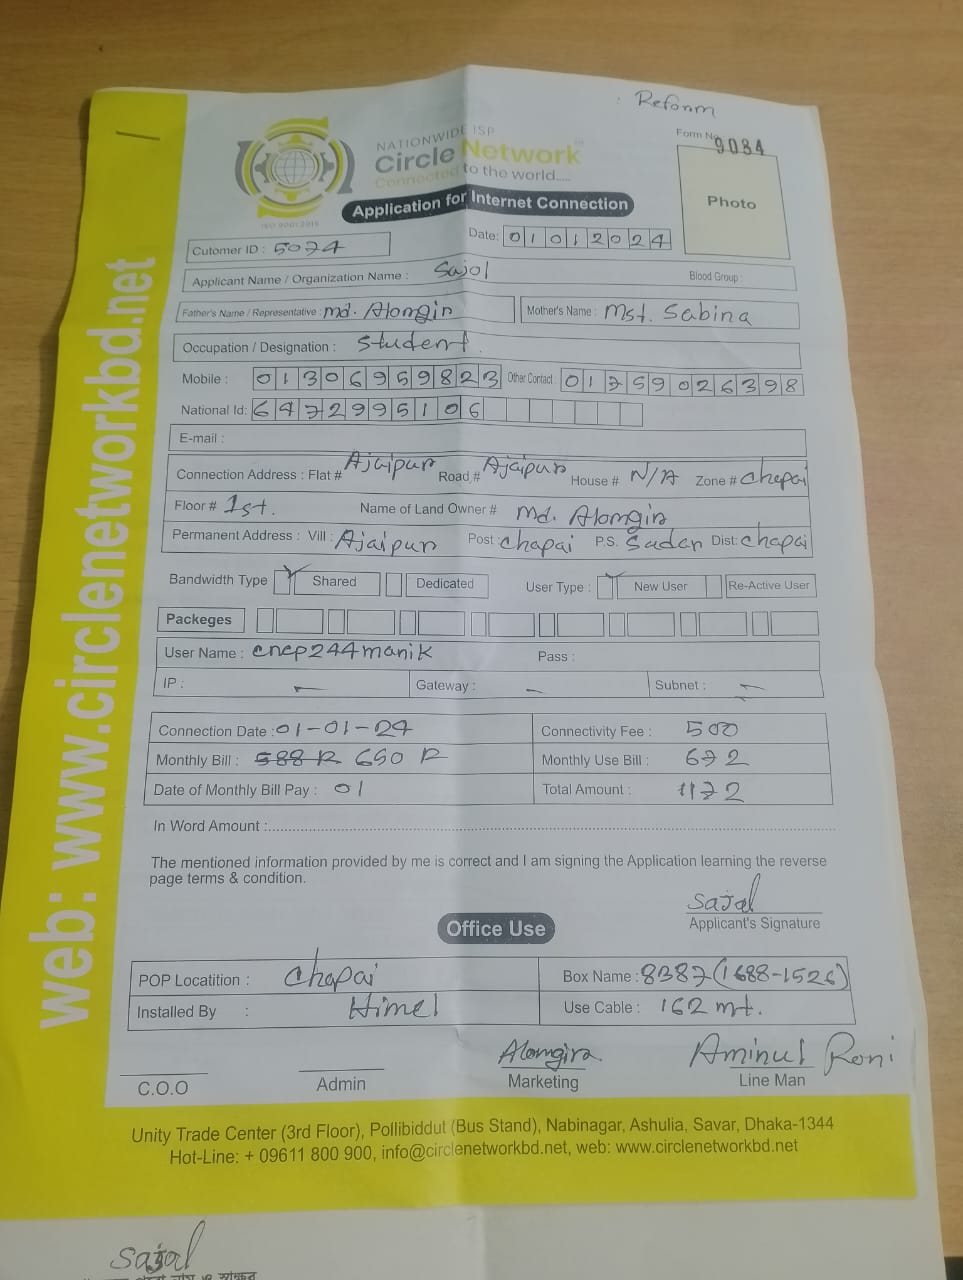 Reform
Form No. 9084
NATIONWIDE ISP
Circle Network
Connected to the world.....
ISO 9001:2015
Photo
Application for Internet Connection
Cutomer ID : 5074
Date: 01012024
Applicant Name / Organization Name : Sajol
Blood Group :
Father's Name / Representative : md. Alomgir
Mother's Name : Mst. Sabina
Occupation / Designation : Student
Mobile : 01306959823 Other Contact : 01759026398
National Id: 6472995106
E-mail :
Connection Address : Flat # Ajaipur Road # Ajaipur House # N/A Zone # Chapai
Floor # 1st. Name of Land Owner # md. Alomgir
Permanent Address : Vill : Ajaipur Post : Chapai P.S. Sadar Dist: Chapai
Bandwidth Type Shared Dedicated User Type : New User Re-Active User
Packeges
User Name : cnep244manik Pass :
IP : – Gateway : – Subnet : –
Connection Date : 01-01-24 Connectivity Fee : 500
Monthly Bill : 588 R 650 R Monthly Use Bill : 672
Date of Monthly Bill Pay : 01 Total Amount : 1172
In Word Amount :
The mentioned information provided by me is correct and I am signing the Application learning the reverse
page terms & condition.
Sajal
Applicant's Signature
Office Use
POP Locatition : Chapai Box Name : 8387 (1688-1526)
Installed By : Himel Use Cable : 162 mt.
Alomgir Aminul Roni
C.O.O Admin Marketing Line Man
Unity Trade Center (3rd Floor), Pollibiddut (Bus Stand), Nabinagar, Ashulia, Savar, Dhaka-1344
Hot-Line: + 09611 800 900, info@circlenetworkbd.net, web: www.circlenetworkbd.net
web: www.circlenetworkbd.net
Sajal